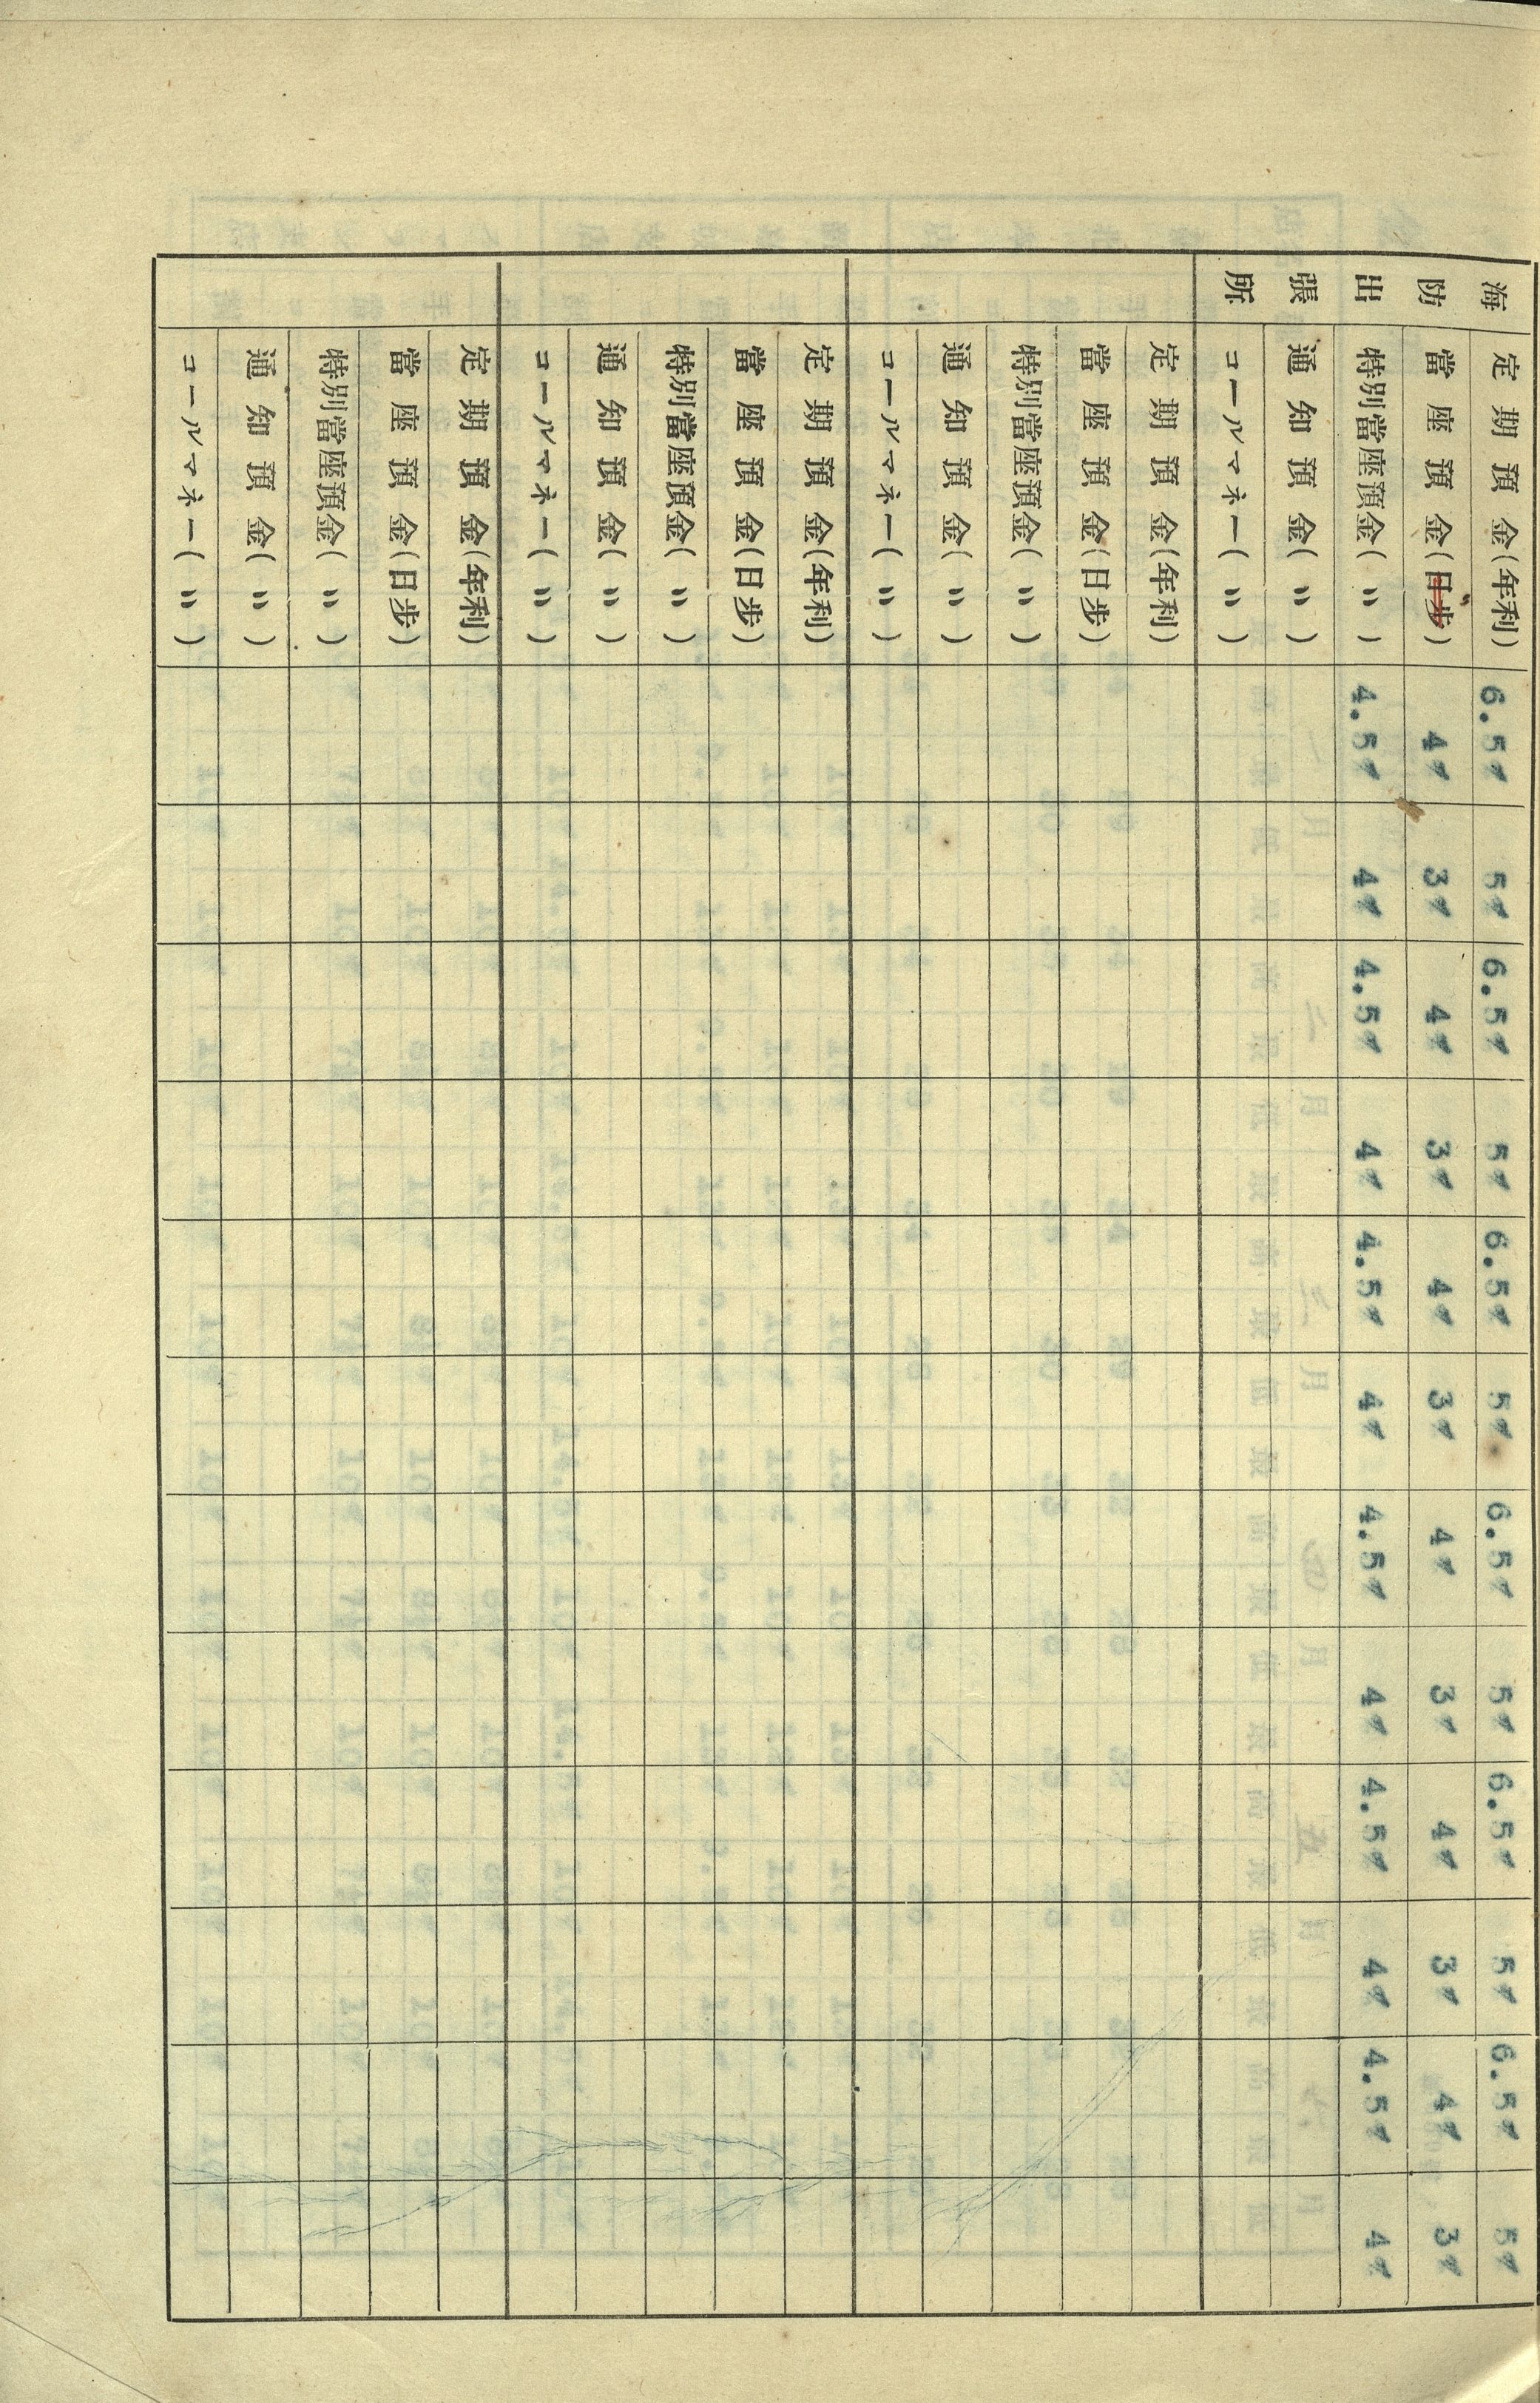 海防出張所
定期預金(年利) 6.5% 5% 6.5% 5% 6.5% 5% 6.5% 5% 6.5% 5% 6.5% 5%
當座預金(日步) 4% 3% 4% 3% 4% 3% 4% 3% 4% 3% 4% 3%
特別當座預金(〃) 4.5% 4% 4.5% 4% 4.5% 4% 4.5% 4% 4.5% 4% 4.5% 4%
通知預金(〃)
コールマネー(〃)
定期預金(年利)
當座預金(日步)
特別當座預金(〃)
通知預金(〃)
コールマネー(〃)
定期預金(年利)
當座預金(日步)
特別當座預金(〃)
通知預金(〃)
コールマネー(〃)
定期預金(年利)
當座預金(日步)
特別當座預金(〃)
通知預金(〃)
コールマネー(〃)